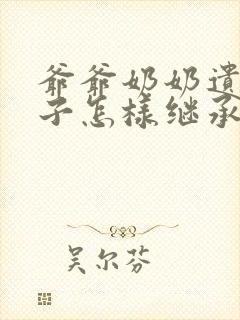 爷爷奶奶遗
子怎样继承
吴尔芬